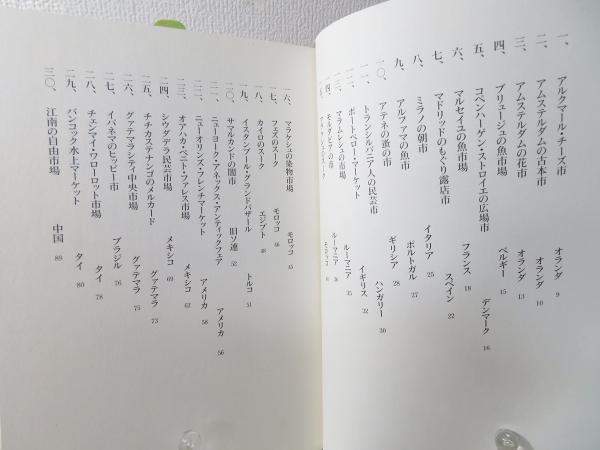 一、アルクマール・チーズ市 オランダ 9
二、アムステルダムの古本市 オランダ 10
三、アムステルダムの花市 オランダ 13
四、ブリュージュの魚市場 ベルギー 15
五、コペンハーゲン・ストロイエの広場市 デンマーク 16
六、マルセイユの魚市場 フランス 18
七、マドリッドのもぐり露店市 スペイン 22
八、ミラノの朝市 イタリア 25
九、アルファマの魚市 ポルトガル 27
一〇、アテネの蚤の市 ギリシア 28
一一、トランシルバニア人の民芸市 ハンガリー 30
一二、ポートベロー・マーケット イギリス 32
一三、マラムレシュの市場 ルーマニア 35
一四、モルダビアの市 ルーマニア
一六、マラケシュの染物市場 モロッコ 45
一七、フェズのスーク モロッコ 46
一八、カイロのスーク エジプト 48
一九、イスタンブール・グランドバザール トルコ 51
二〇、サマルカンドの闇市 旧ソ連 52
二一、ニューヨーク・アネックス・アンティックフェア アメリカ 56
二二、ニューオリンズ・フレンチマーケット アメリカ 58
二三、オアハカ・ベニト・ファレス市場 メキシコ 62
二四、シウダデラ民芸市場 メキシコ 69
二五、チチカステナンゴのメルカード グァテマラ 73
二六、グァテマラシティ中央市場 グァテマラ 75
二七、イパネマのヒッピー市 ブラジル 76
二八、チェンマイ・ワローロット市場 タイ 78
二九、バンコック水上マーケット タイ 80
三〇、江南の自由市場 中国 89